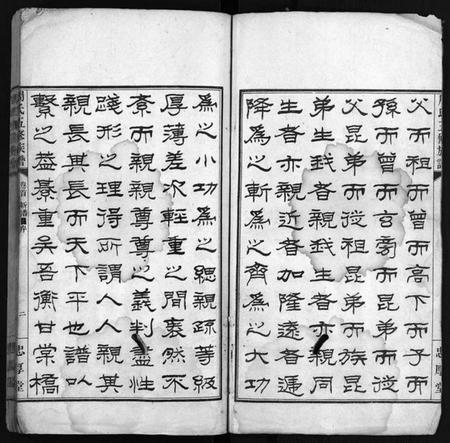 周氏五修族譜
忠厚堂
父而祖而曾而高下而子而
孫而曾而玄旁而昆弟而從
父昆弟而從祖昆弟而族昆
弟生我者親我生者亦親同
生者亦親近者加隆遠者遞
降為之斬為之齊為之大功
為之小功為之緦親疏等級
厚薄差次輕重之間袠然不
紊而親親尊尊之義判盡性
踐形之理得所謂人人親其
親長其長而天下平也譜以
繫之益綦重矣吾衡甘棠橋
周氏五修族譜
卷首
序
二
忠厚堂